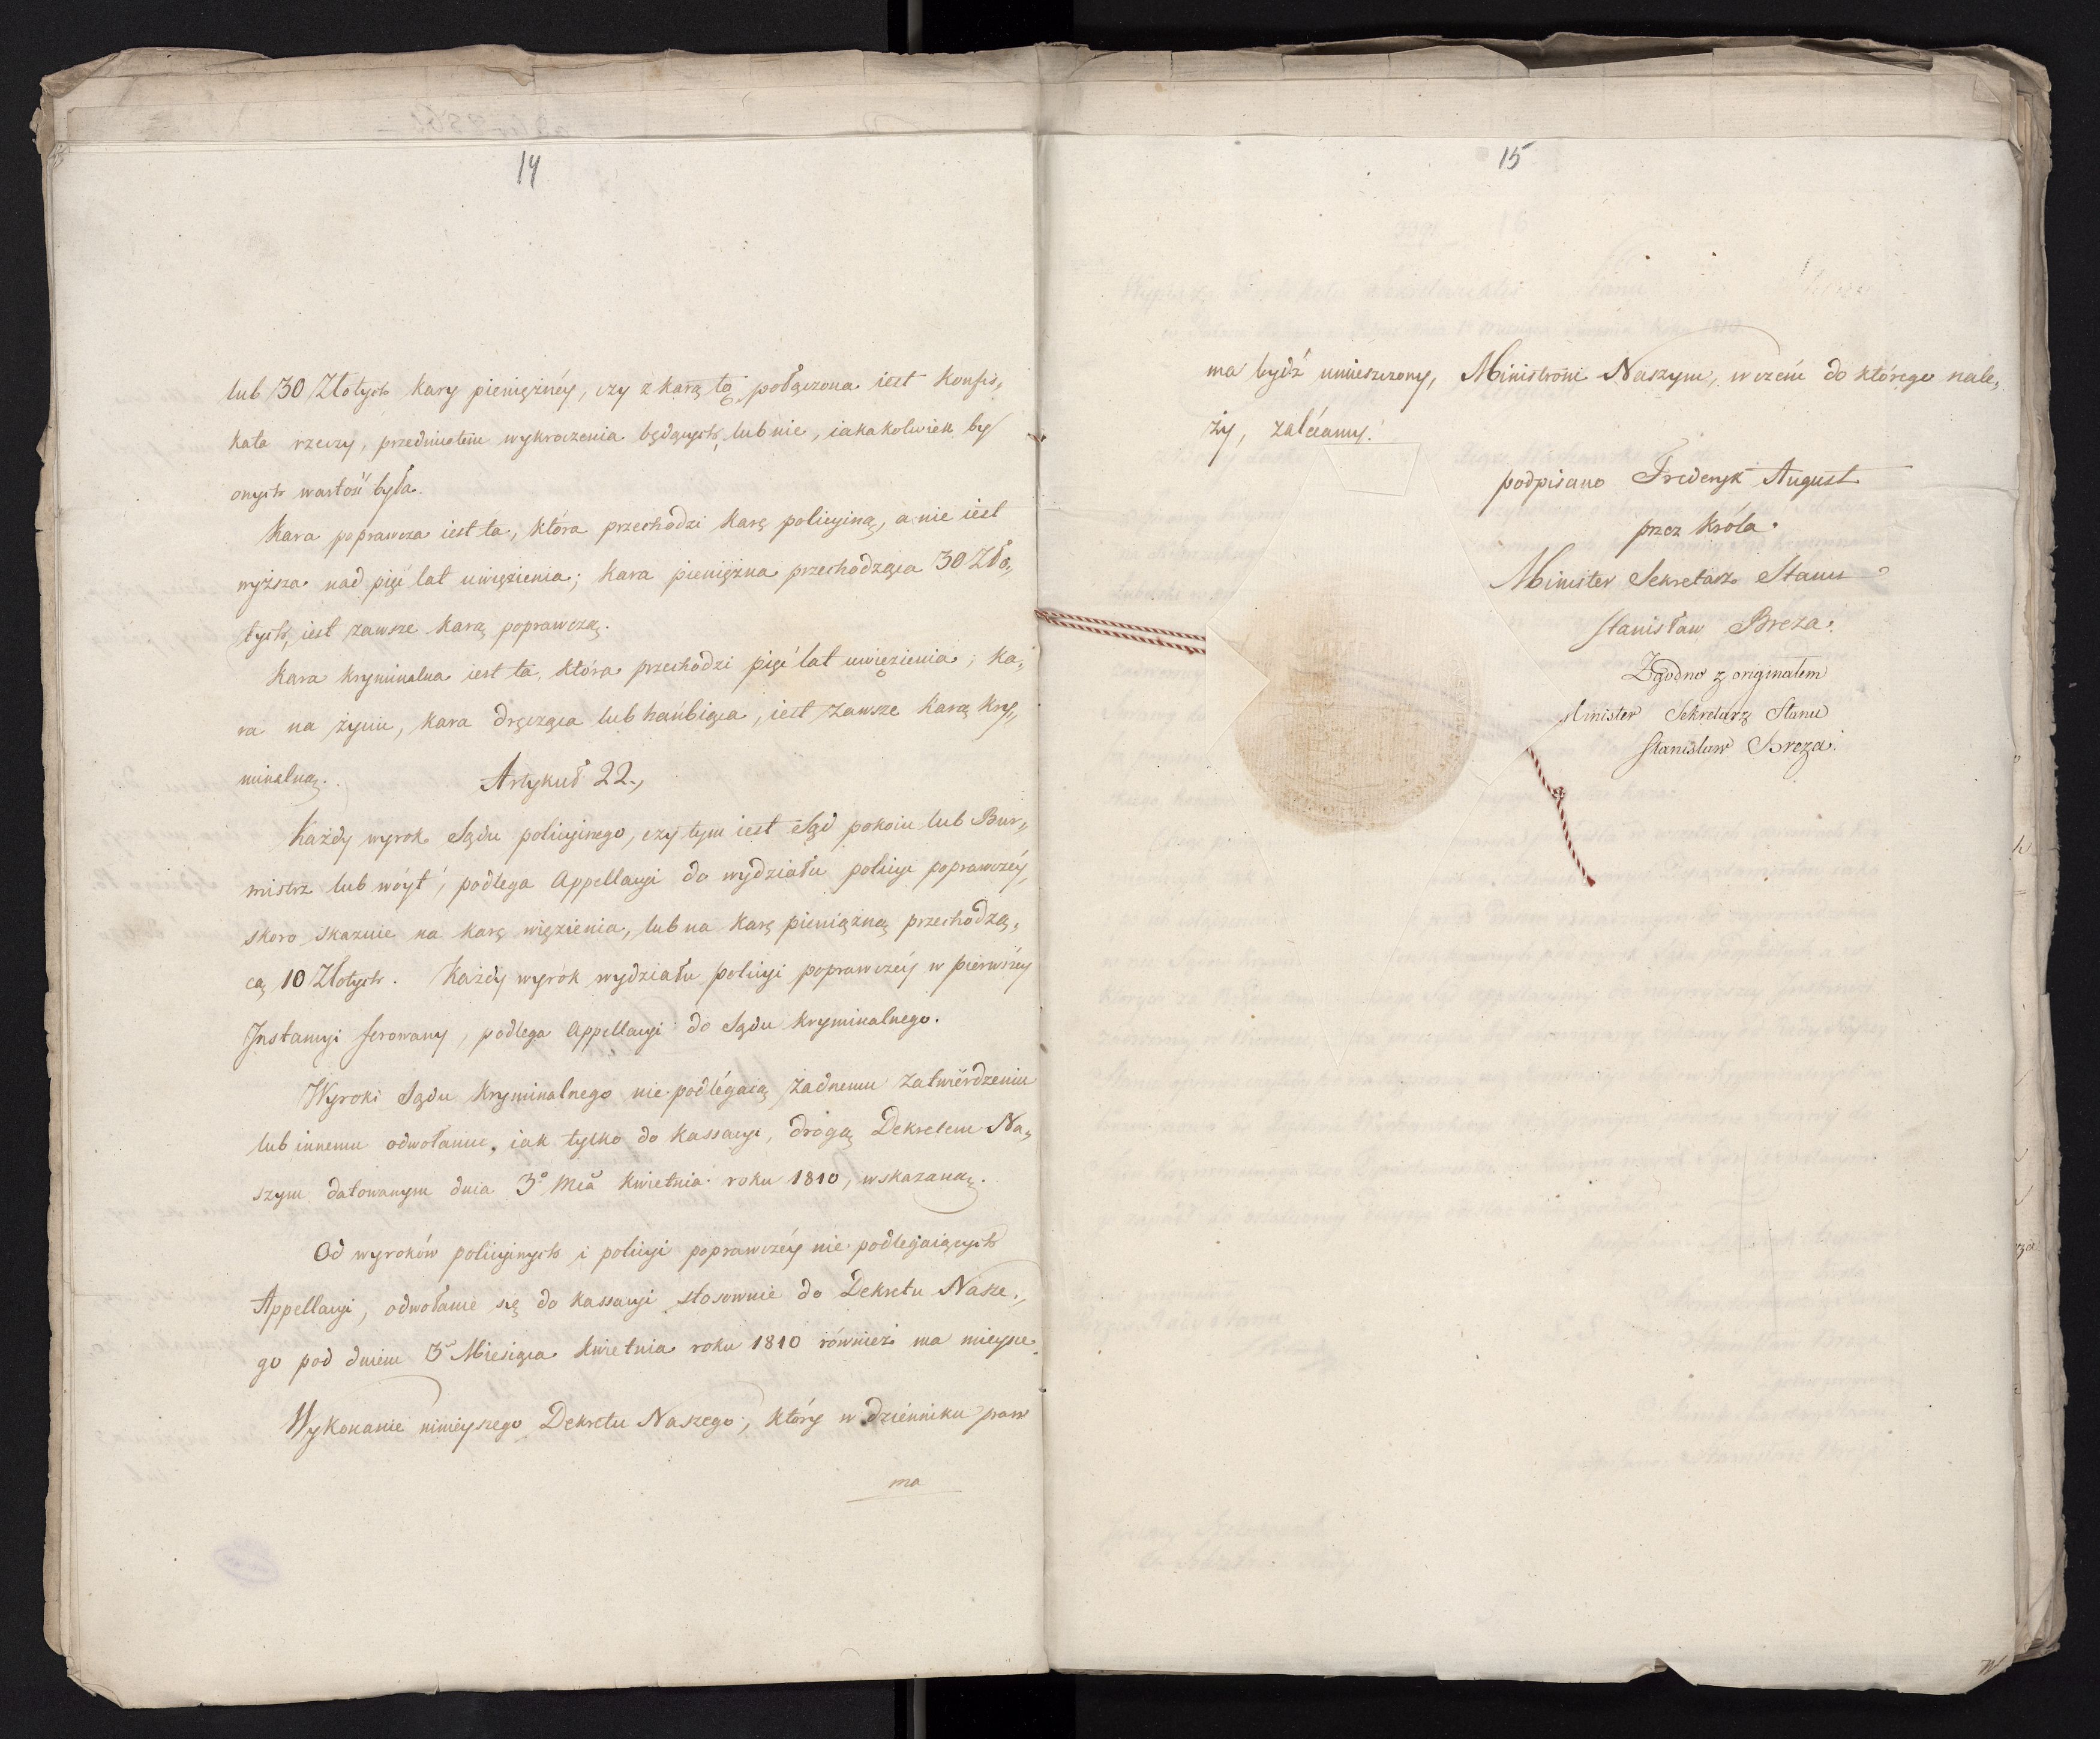 14
lub 30 Złotych kary pieniężnéy, czy z karą tą połączona iest konfis„
kata rzeczy, przedmiotem wykroczenia będących, lub nie, iakakolwiek by
onych wartość była.
Kara poprawcza iest ta, która przechodzi karę policyiną, a nie iest
wyższa nad pięć lat uwięzienia; kara pieniężna przechodząca 30 Zło„
tych, iest zawsze karą poprawczą.
Kara kryminalna iest ta, która przechodzi pięć lat uwięzienia; ka„
ra na życiu, kara dręcząca lub hańbiąca, iest zawsze karą kry„
minalną.
Artykuł 22.,
Każdy wyrok Sądu policyinego, czy tym iest Sąd pokoiu lub Bur„
mistrz lub wóyt, podlega Appellacyi do wydziału policyi poprawczéy,
skoro skazuie na karę więzienia, lub na karę pieniężną przechodzą„
cą 10 Złotych. Każdy wyrok wydziału policyi poprawczéy w pierwszéy
Instancyi ferowany, podlega Appellacyi do Sądu kryminalnego.
Wyroki Sądu kryminalnego nie podlégaią żadnemu zatwiérdzeniu
lub innemu odwołaniu, iak tylko do kassacyi, drogą Dekretem Na„
szym datowanym dnia 3º Mca kwietnia roku 1810, wskazaną.
Od wyroków policyinych i policyi poprawczéy nie podlegaiących
Appellacyi, odwołanie się do kassacyi stosownie do Dekretu Nasze„
go pod dniem 3º Miesiąca kwietnia roku 1810 również ma mieysce.
Wykonanie ninieyszego Dekretu Naszego, który w dzienniku praw
ma
15
ma bydź umieszczony, Ministrowi Naszym, w czém do którego nale„
ży, zalécamy.
podpisano Frederyk August
przez Króla.
Minister Sekretarz Stanu
Stanisław Breza.
Zgodno z originałem
Minister Sekretarz Stanu
Stanisław Breza.